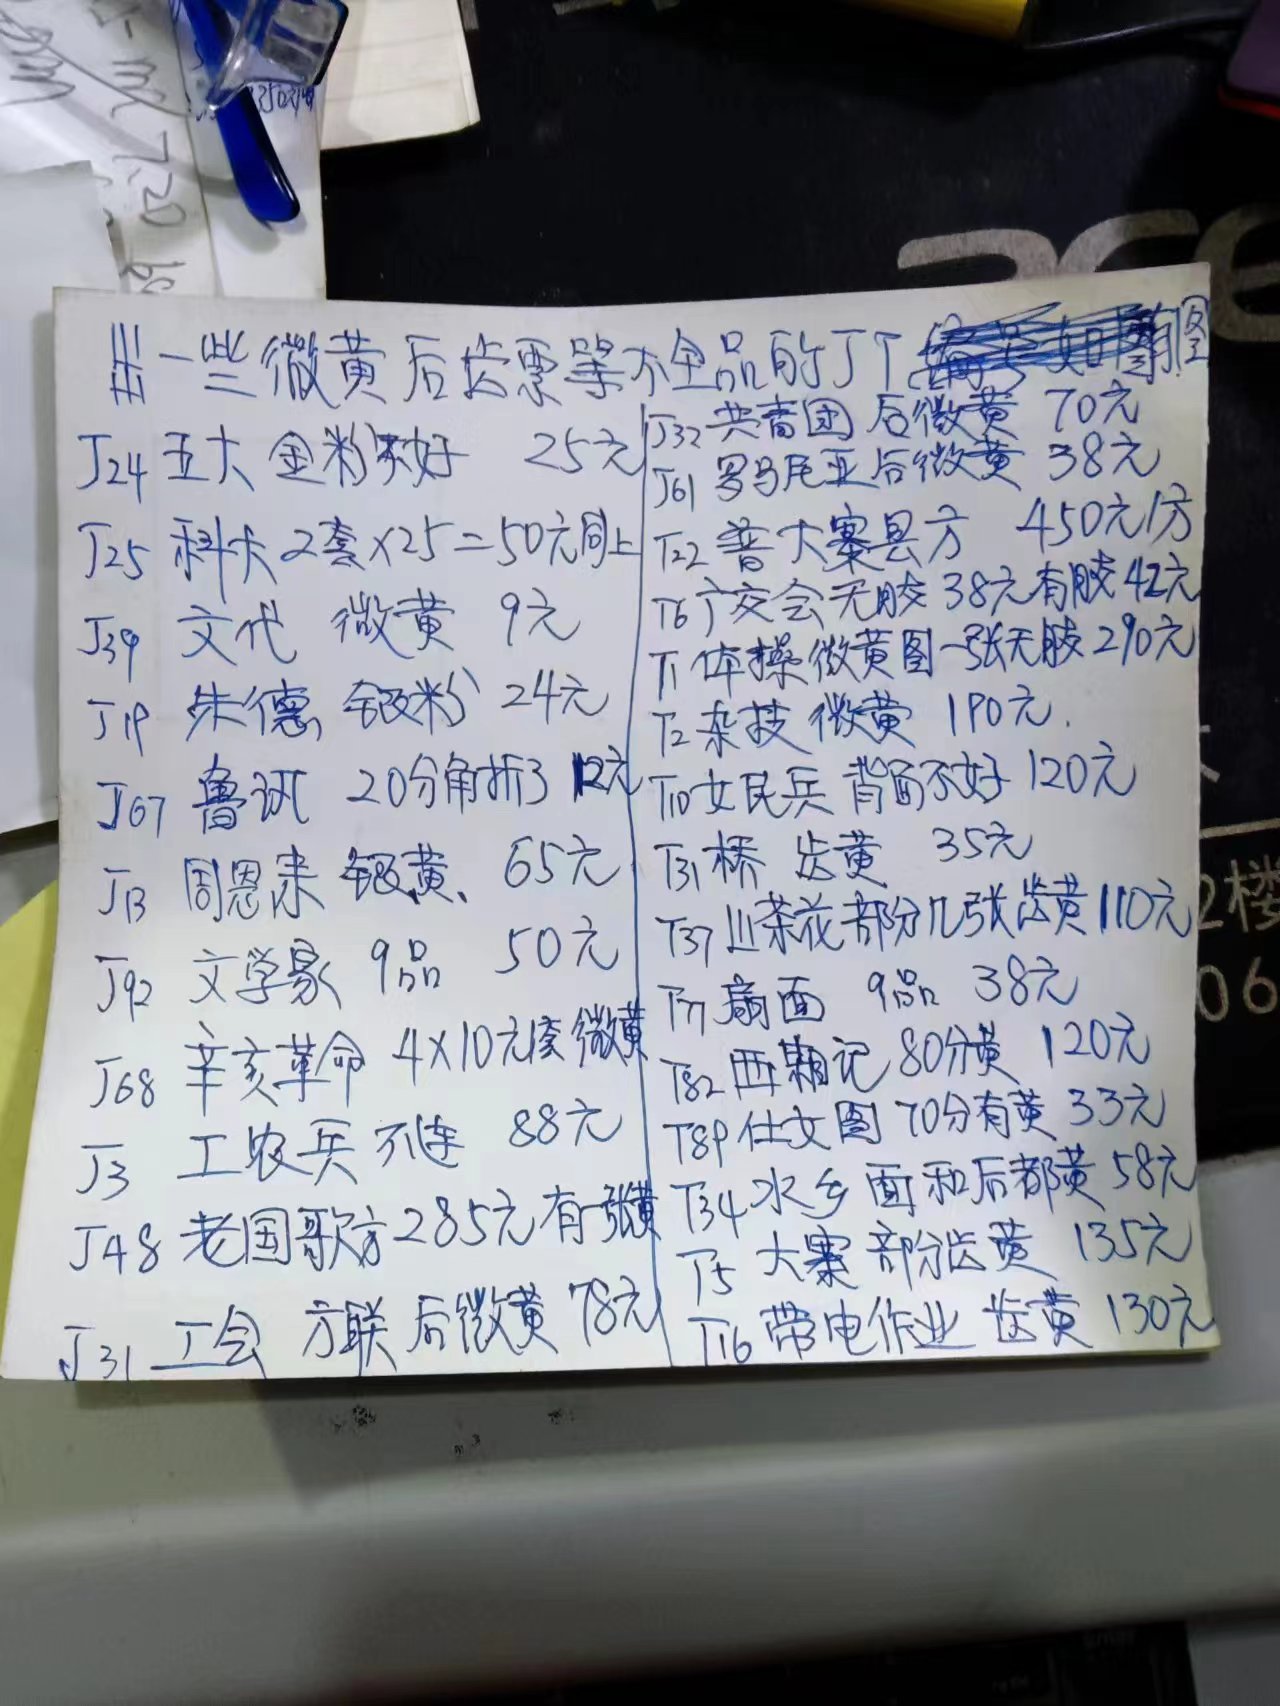 一些微黄后齿票等不全品的JT
J24 五大 金粉不好 25元
J25 科卡 2套×25=50元同上
J39 文代 微黄 9元
J19 朱德 银粉 24元
J67 鲁讯 20分角折了 12元
J13 周恩来 银黄 65元
J92 文学家 9品 50元
J68 辛亥革命 4×10元/套 微黄
J3 工农兵 不连 88元
J48 老国歌方 285元 有一张黄
J31 工会 方联 后微黄 78元
J32 共青团 后微黄 70元
J61 罗马尼亚 后微黄 38元
T22 普大寨县方 450元/方
T6 广交会 无胶 38元 有胶 42元
T1 体操 微黄图一张无胶 290元
T2 杂技 微黄 190元
T10 女民兵 背面不好 120元
T31 桥 齿黄 35元
T37 山茶花 部分几张齿黄 110元
T77 扇面 9品 38元
T82 西厢记 80分黄 120元
T89 仕女图 70分有黄 33元
T34 水乡 面和后都黄 58元
T5 大寨 部分齿黄 135元
T16 带电作业 齿黄 130元
ace
2楼
06
7.20